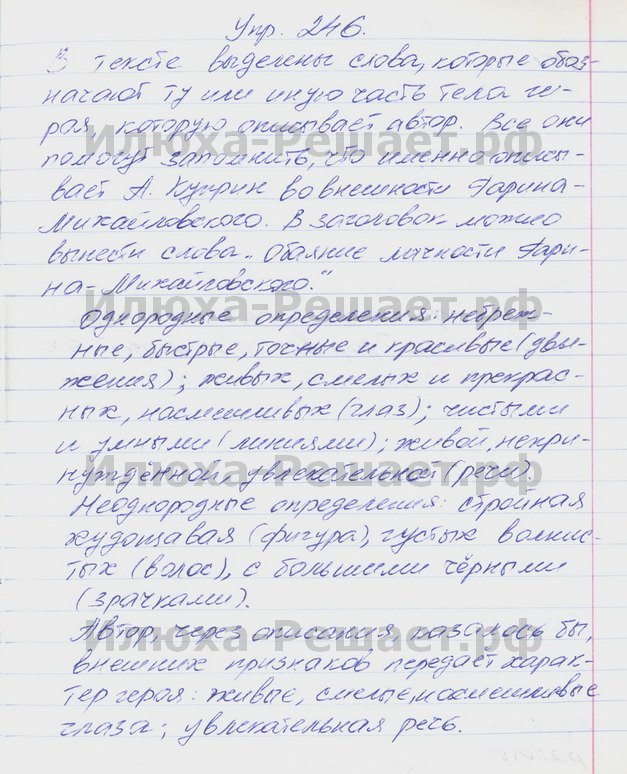 Упр. 246.
В тексте выделены слова, которые обоз-
начают ту или иную часть тела ге-
роя, которую описывает автор. Все они
помогут запомнить, что именно описы-
вает А. Куприн во внешности Гарина-
Михайловского. В заголовок можно
вынести слова „Обаяние личности Гари-
на-Михайловского."
Однородные определения: небреж-
ные, быстрые, точные и красивые (дви-
жения); живых, смелых и прекрас-
ных, насмешливых (глаз); чистыми
и умными (линиями); живой, непри-
нуждённой, увлекательной (речи).
Неоднородные определения: стройная
худощавая (фигура), густых волнис-
тых (волос), с большими чёрными
(зрачками).
Автор, через описания, казалось бы,
внешних признаков передаёт харак-
тер героя: живые, смелые, насмешливые
глаза; увлекательная речь.
Илюха-Решает.рф
Илюха-Решает.рф
Илюха-Решает.рф
Илюха-Решает.рф